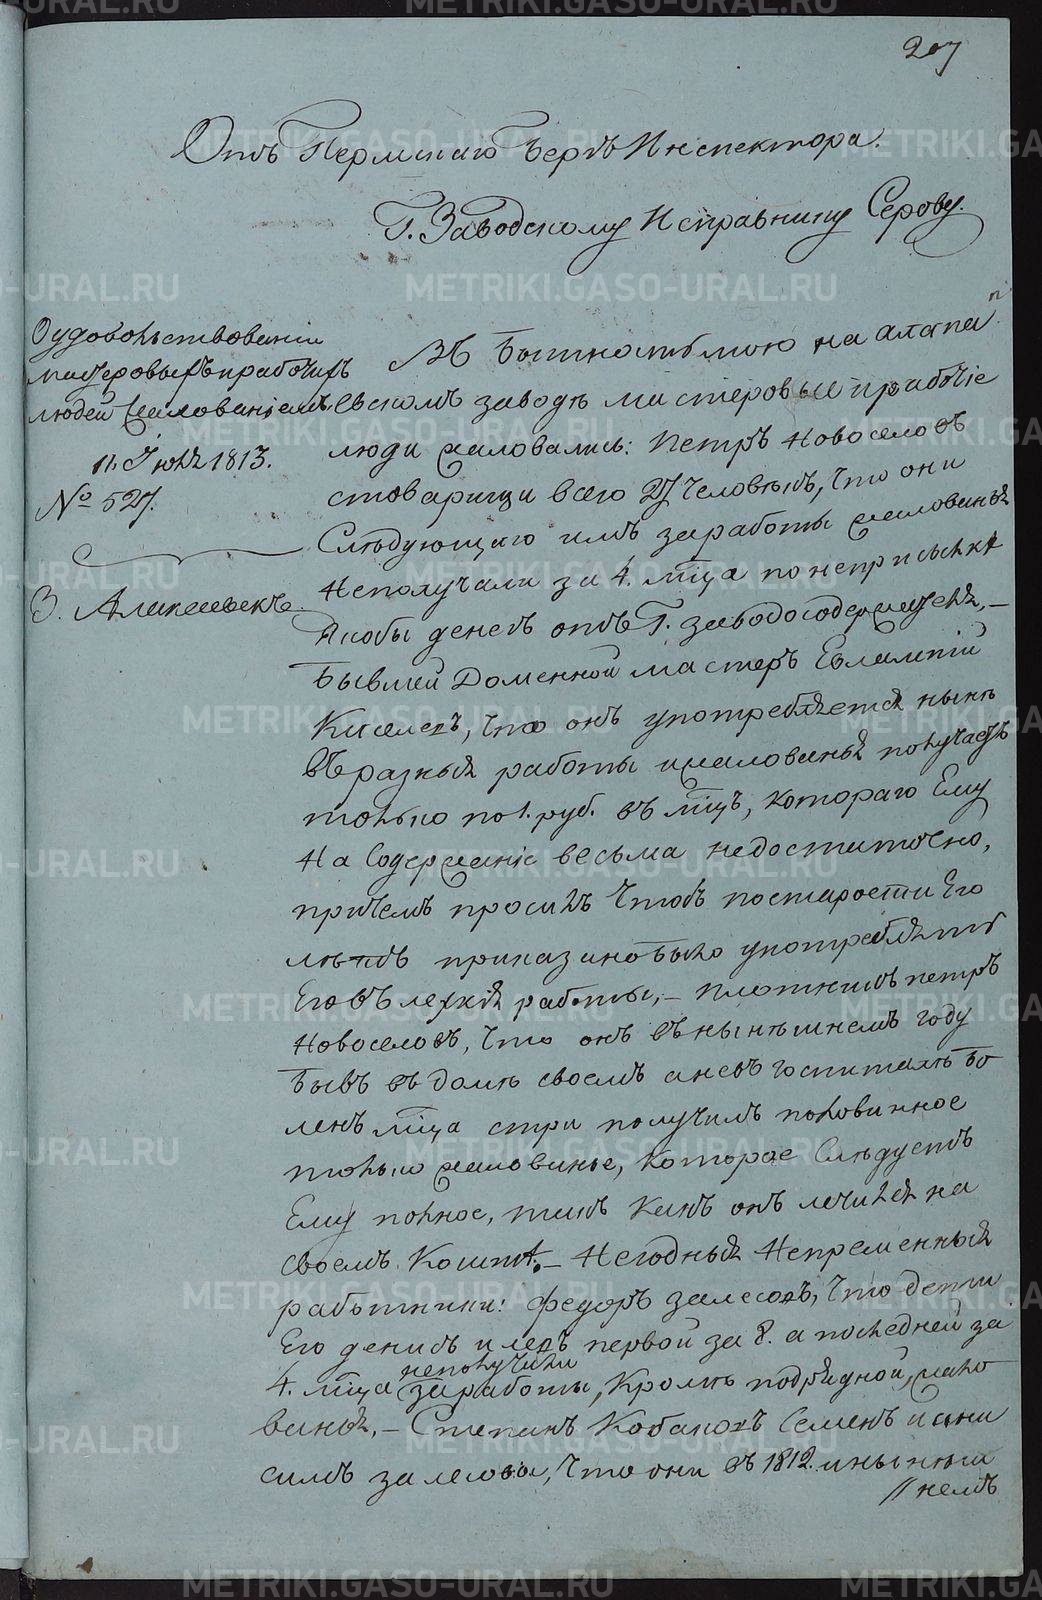 207
Отъ Пермскаго Бергъ Инспектора.
Г. Заводскому Исправнику Серову.
О удовольствованіи
мастеровыхъ и рабочихъ
людей жалованіемъ
11. Іюля 1813.
№ 527.
З. Алапаевскъ
Въ бытность мою на алапа
евскомъ заводѣ мастеровые и рабочіе
люди жаловались: Петръ Новоселовъ
стоварищи всего 27 человѣкъ, что они
слѣдующаго имъ заработы жалованья
неполучали за 4. мца понеприсылкѣ
якобы денегъ отъ Г. заводосодержателя, –
бывшей Доменной мастеръ Евлампій
Киселевъ, что онъ употребляется нынѣ
въ разныя работы и жалованья получаетъ
только по 1. руб. въ мцъ, котораго Ему
на содержаніе весьма недостаточно,
причемъ просилъ чтобъ постарости Его
лѣтъ приказано было употреблять
Его въ легкія работы, – плотникъ петръ
Новоселовъ, что онъ въ нынѣшнемъ году
бывъ въ домѣ своемъ а не въ госпиталѣ бо
ленъ мца стри получилъ половинное
только жалованье, которое слѣдуетъ
Ему полное, такъ какъ онъ лечился на
своемъ коштѣ. – Негодныя непременныя
работники: Федоръ залесовъ, что дети
Его денисъ и левъ первой за 8. а последней за
4. мца неполучили заработы, кромѣ подрядной, жало
ванья, – Степанъ Кабаковъ Семенъ и они
симъ залесовы, что они въ 1812. и нынѣш
// немъ
METRIKI.GASO-URAL.RU